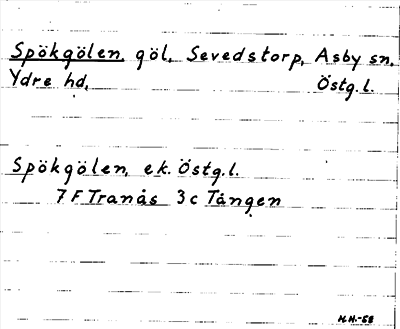 Spökgölen, göl, Sevedstorp, Asby sn,
Ydre hd, Östg.l.
Spökgölen, ek. Östg.l.
7 F Tranås 3 c Tången
H.H.-58